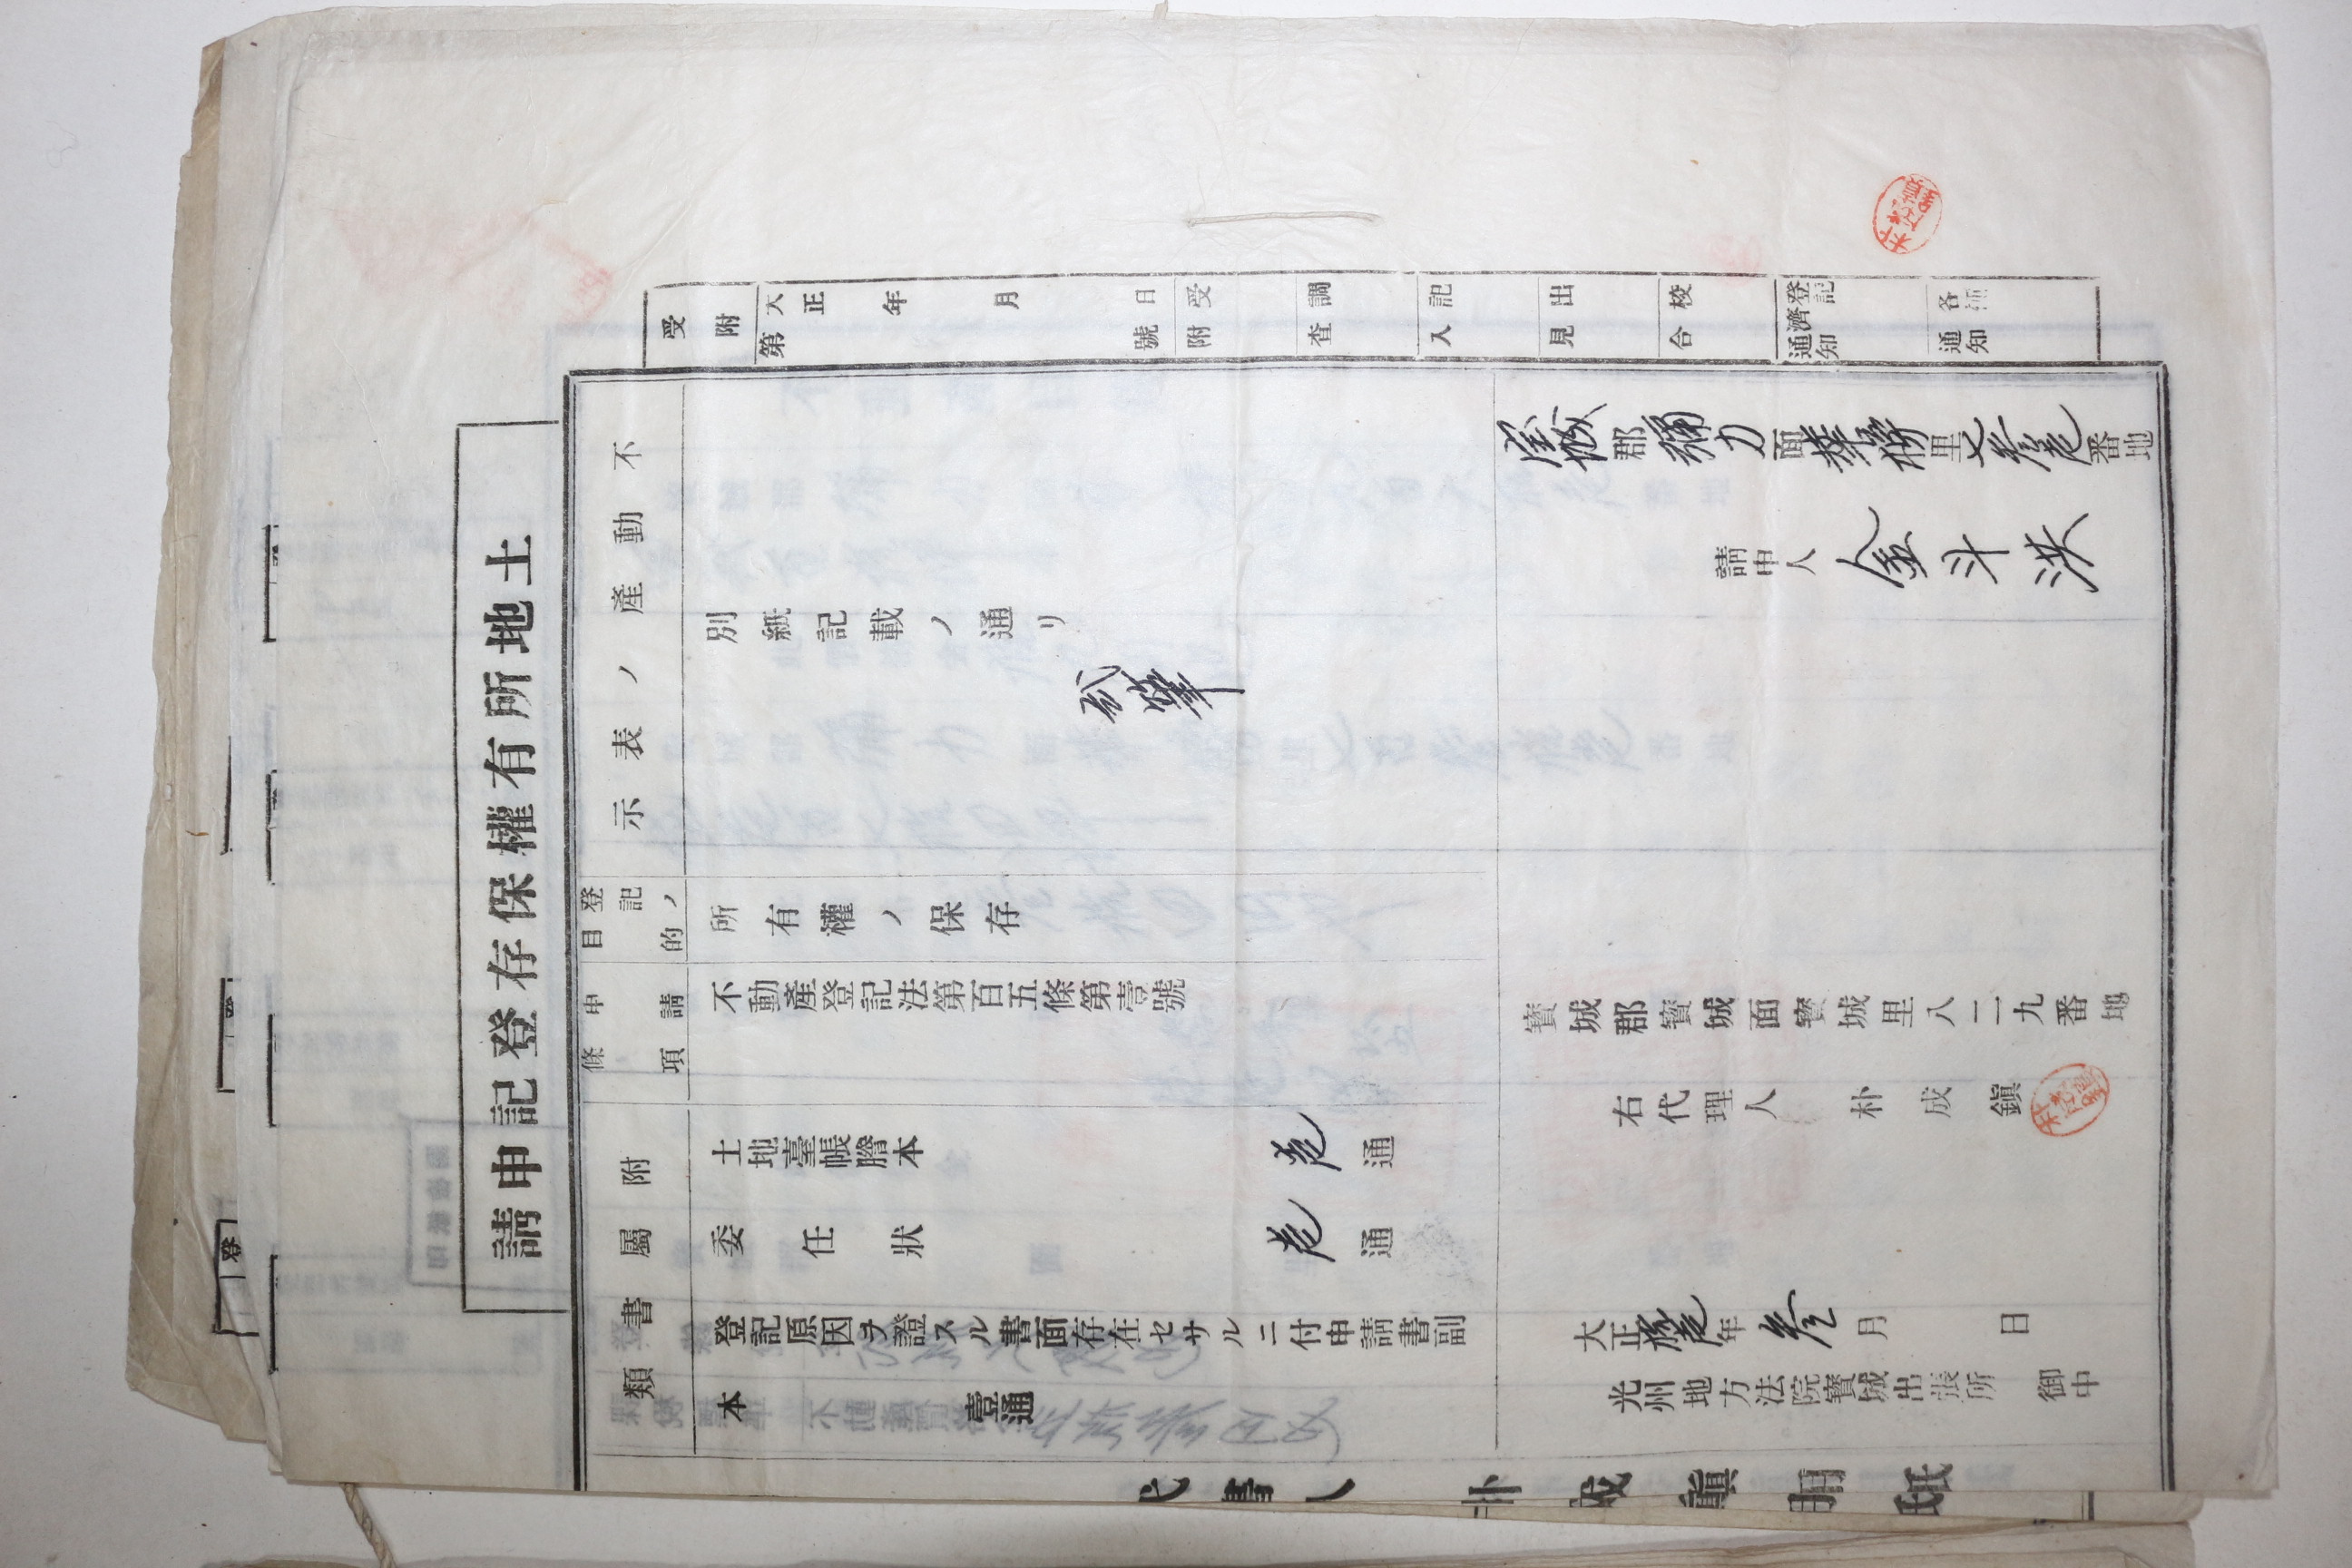 土地所有權保存登記申請
受附
大正 年 月 日
第 號
受附
調査
記入
見出
校合
登記濟通知
各種通知
不動産ノ表示
別紙記載ノ通リ
貳筆
登記ノ目的
所有權ノ保存
申請條項
不動産登記法第百五條第壹號
附屬書類
土地臺帳謄本 壱通
委任狀 壱通
登記原因ヲ證スル書面存在セサルニ付申請書副
本 壹通
寶城郡彌力面 里七参壱番地
申請人 金斗洪
寶城郡寶城面寶城里八二九番地
右代理人 朴成鎭
大正拾壱年参月 日
光州地方法院寶城出張所 御中
代書人 朴成鎭用紙